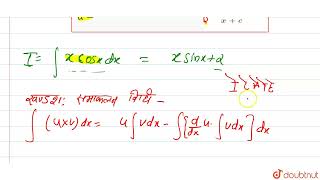 x + c
I = ∫ x cosx dx = x sinx + α
I L A T E
खण्डशः समाकलन विधि -
∫ (u×v)dx = u ∫ v dx - ∫ [d/dx u. ∫ v dx] dx
doubtnut